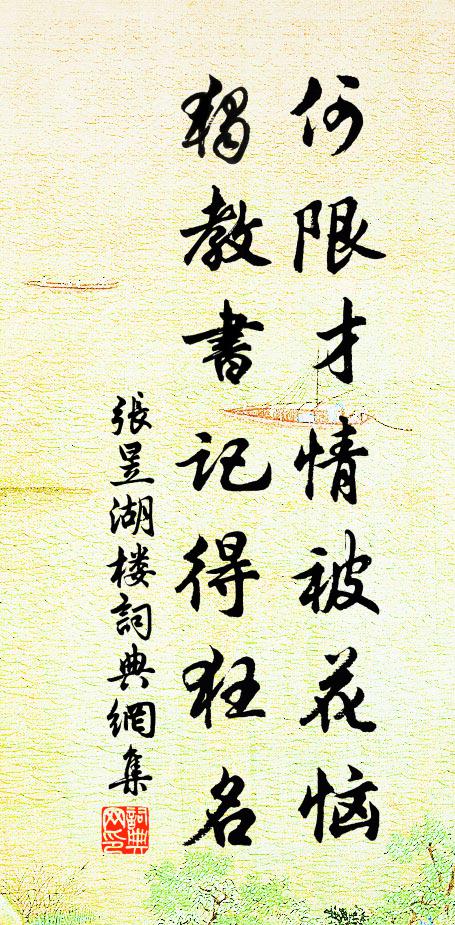 何限才情被花恼
独教書记得狂名
張昱湖楼詞典網集
詞典網印